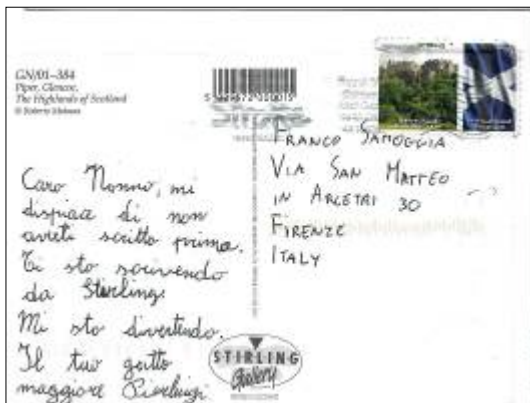 GN/01-384
Piper, Glencoe,
The Highlands of Scotland
Caro Nonno, mi
dispiace di non
averti scritto prima.
Ti sto scrivendo
da Stirling.
Mi sto divertendo.
Il tuo gatto
maggiore Pierluigi
FRANCO SAMOGGIA
VIA SAN MATTEO
IN ARCETRI 30
FIRENZE
ITALY
STIRLING
Gallery